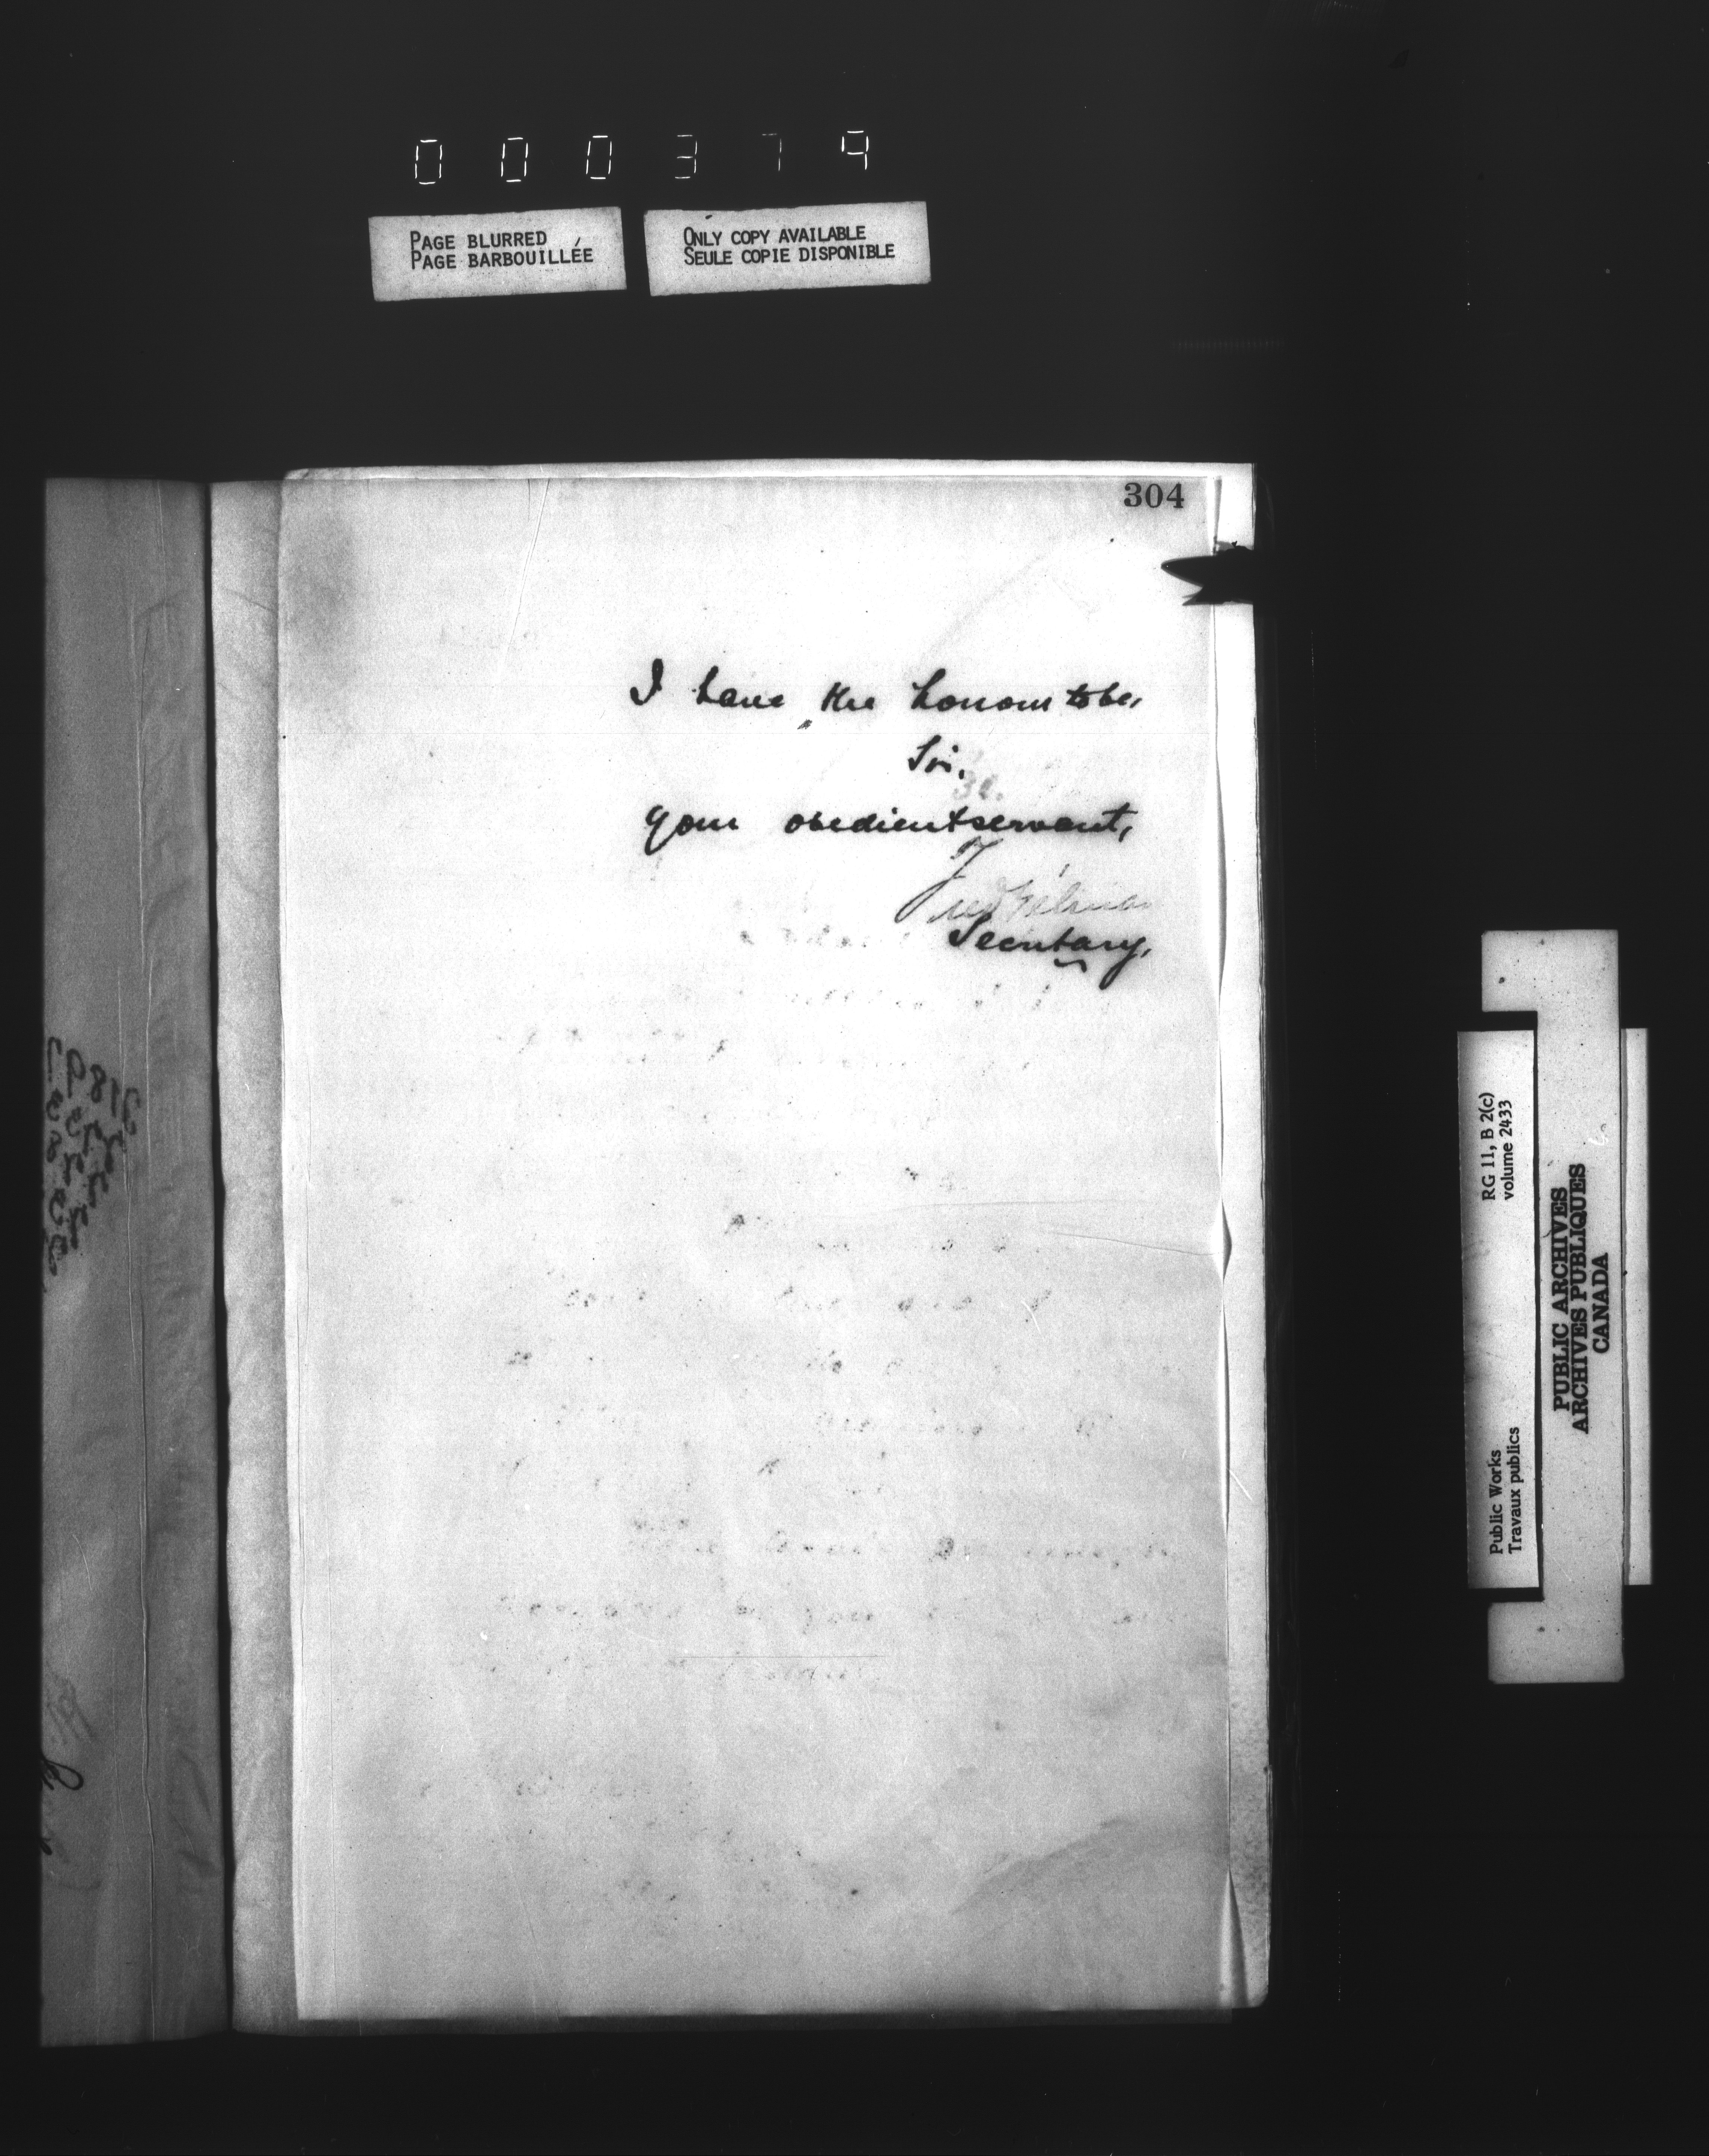 000379
PAGE BLURRED
PAGE BARBOUILLÉE
ONLY COPY AVAILABLE
SEULE COPIE DISPONIBLE
304
I have the honour to be,
Sir,
Your obedient servant,
Fred Gélinas
Secretary.
RG 11, B 2(c)
volume 2433
Public Works
Travaux publics
PUBLIC ARCHIVES
ARCHIVES PUBLIQUES
CANADA